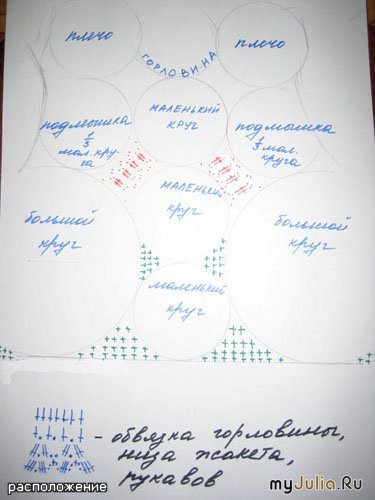 плечо
плечо
ГОРЛОВИНА
МАЛЕНЬКИЙ
КРУГ
подмышка
1/3
мал. кру-
га
подмышка
1/3 мал.
круга
МАЛЕНЬКИЙ
КРУГ
большой
круг
большой
круг
маленький
круг
- обвязка горловины,
низа жакета,
рукавов
расположение
myJulia.Ru